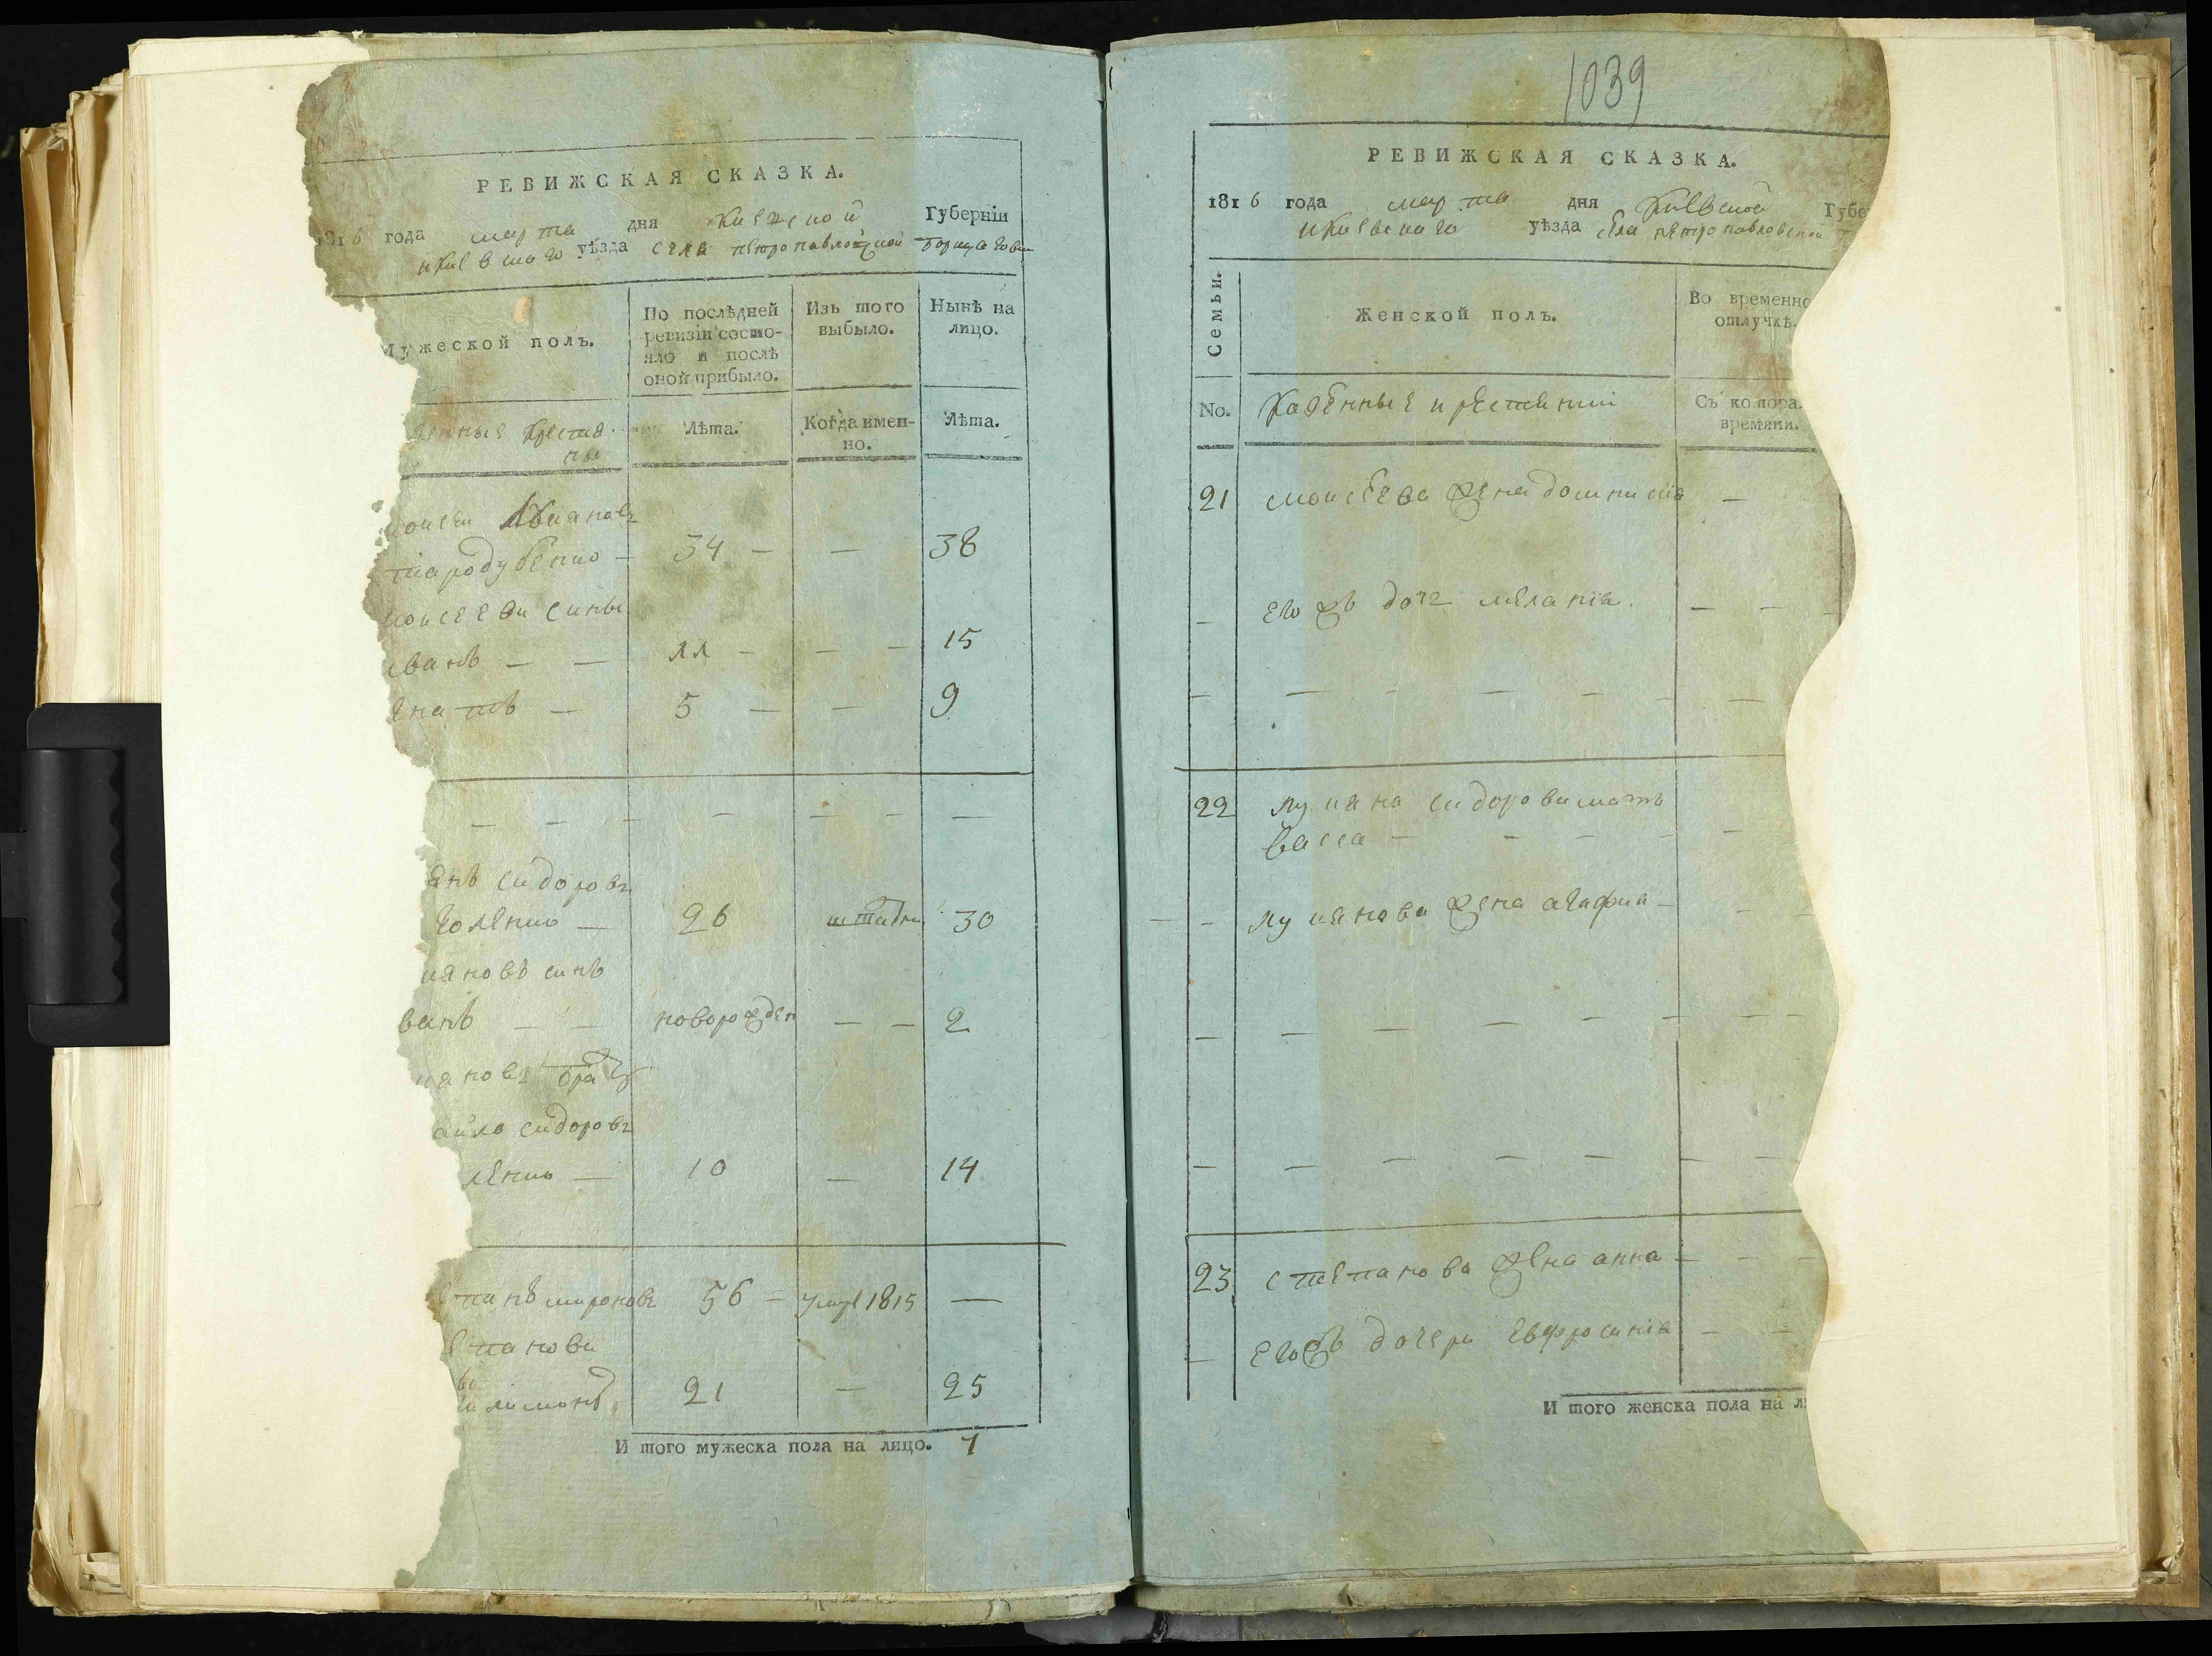 РЕВИЖСКАЯ СКАЗКА.
1816 года марта дня Киевской Губерніи
Икиевскаго уѣзда села петропавловской борщаговки
Мужеской полъ.
По послѣдней ревизіи состояло и послѣ оной прибыло.
Изъ того выбыло.
Нынѣ на лицо.
енные крестя
не
Лѣта.
Когда именно.
Лѣта.
оисей
тародубенко — 34 — — 38
моисееви сины
ванъ — — 11 — — — 15
гнатъ — 5 — — 9
— — — — — — —
янъ сидоровъ
голенко — 26 30
иановъ синъ
ванъ — — новорожден — — 2
яновъ братъ
айло сидоровъ
ленко — 10 — 14
епанъ мироновъ 56 = умре 1815 —
епанови
илимонъ 21 — 25
И того мужеска пола на лицо. 7
1039
РЕВИЖСКАЯ СКАЗКА.
1816 года марта дня Киевской Губе
Икиевскаго уѣзда села петропавловской
Семьи.
Женской полъ.
Во временно отлучкѣ.
No.
Казенные крестяне
Съ котора. времяни.
21 моисеева жена домникія —
— егожъ дочь меланія. — — —
— — — — — — —
22 лукяна сидорови мать
васса — — — — —
— лукянова жена агафиа — — —
— — — — — — — —
— — — — — — — —
23 степанова жена анна — — —
— егожъ дочери евфросинія — —
И того женска пола на л